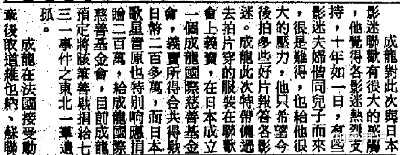 成龍對此次與日本
影迷聯歡有很大的感觸
，他覺得各影迷熱烈支
持，十年如一日，有些
影迷夫婦偕同兒子而來
，很是難得，也給他很
大的壓力，他只希望今
後拍多些好片報答各影
迷。成龍此次特帶備過
去拍片穿的服裝在聯歡
會上義賣，在日本成立
一個成龍國際慈善基金
會，義賣所得合共得數
日幣二百多萬，而日本
歌星雪原也特別响應捐
贈二百萬，給成龍國際
慈善基金會，目前成龍
預定將該筆善款捐給七
三一事件之東北一軍遺
孤。
成龍在法國接受動
後取道維也納、蘇聯